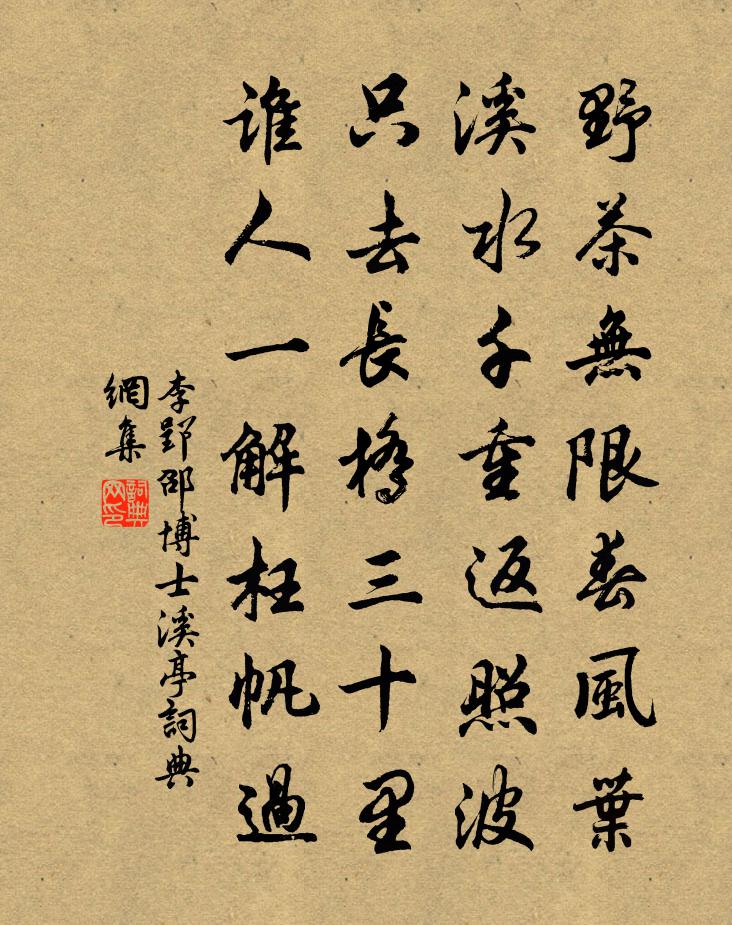 野茶無限春風葉
溪水千重返照波
只去長橋三十里
誰人一解枉帆過
李郢邵博士溪亭詞典
網集
詞典
网印